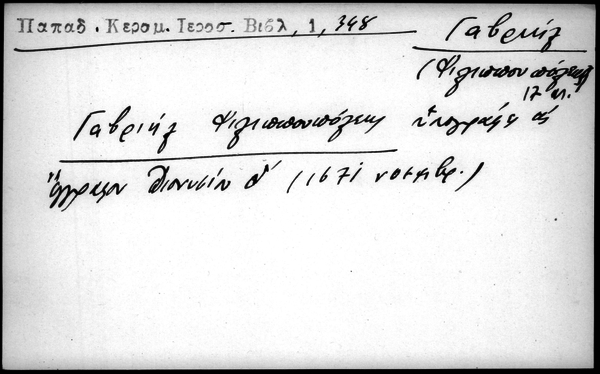 Παπαδ. Κεραμ. Ιεροσ. Βιβλ, 1, 348
Γαβριήλ
(Φιλιππουπόλεως
17 αι.)
Γαβριήλ Φιλιππουπόλεως ὑπογράφει εἰς
ἔγγραφον Διονυσίου Δ' (1671 νοεμβρ.)